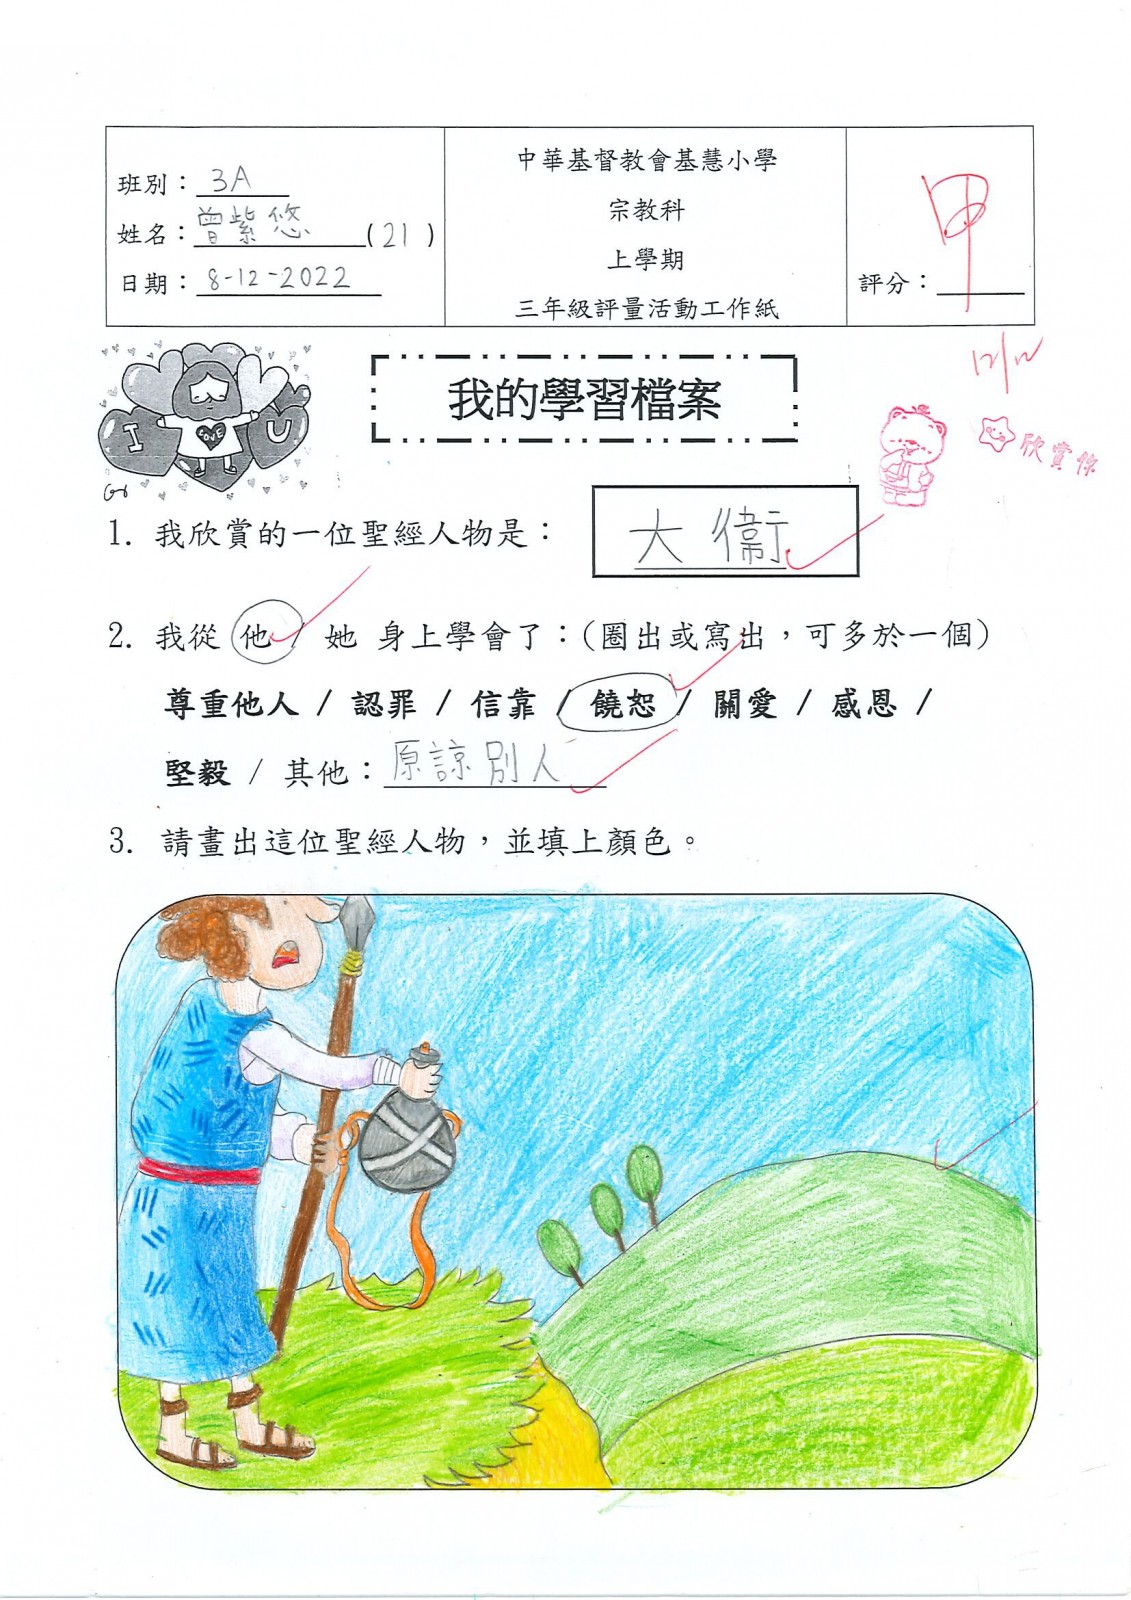 班別：3A
姓名：曾紫悠(21)
日期：8-12-2022
中華基督教會基慧小學
宗教科
上學期
三年級評量活動工作紙
甲
評分：
12/12
I LOVE U
我的學習檔案
欣賞你
1. 我欣賞的一位聖經人物是：大衞
2. 我從 他 / 她 身上學會了：(圈出或寫出，可多於一個)
尊重他人 / 認罪 / 信靠 / 饒恕 / 關愛 / 感恩 /
堅毅 / 其他：原諒別人
3. 請畫出這位聖經人物，並填上顏色。